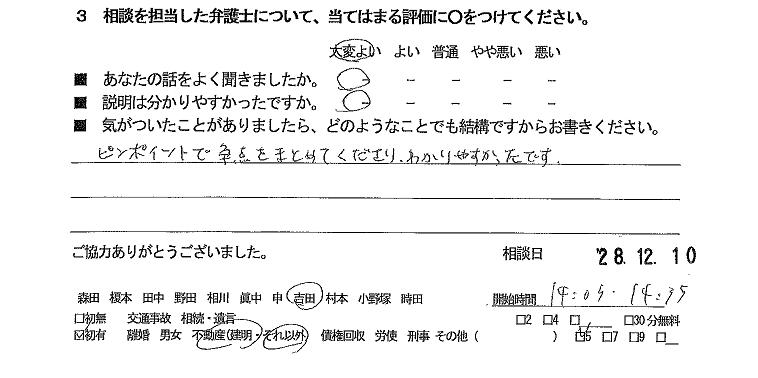 3 相談を担当した弁護士について、当てはまる評価に〇をつけてください。
大変よい よい 普通 やや悪い 悪い
■ あなたの話をよく聞きましたか。 - - - - -
■ 説明は分かりやすかったですか。 - - - - -
■ 気がついたことがありましたら、どのようなことでも結構ですからお書きください。
ピンポイントで争点をまとめてくださり、わかりやすかったです。
ご協力ありがとうございました。 相談日 '28.12.10
森田 榎本 田中 野田 相川 眞中 申 吉田 村本 小野塚 時田 開始時間 14:05-14:35
□初無 交通事故 相続・遺言 □2 □4 □__ □30分無料
☑初有 離婚 男女 不動産(建明・それ以外) 債権回収 労使 刑事 その他( ) □5 □7 □9 □__